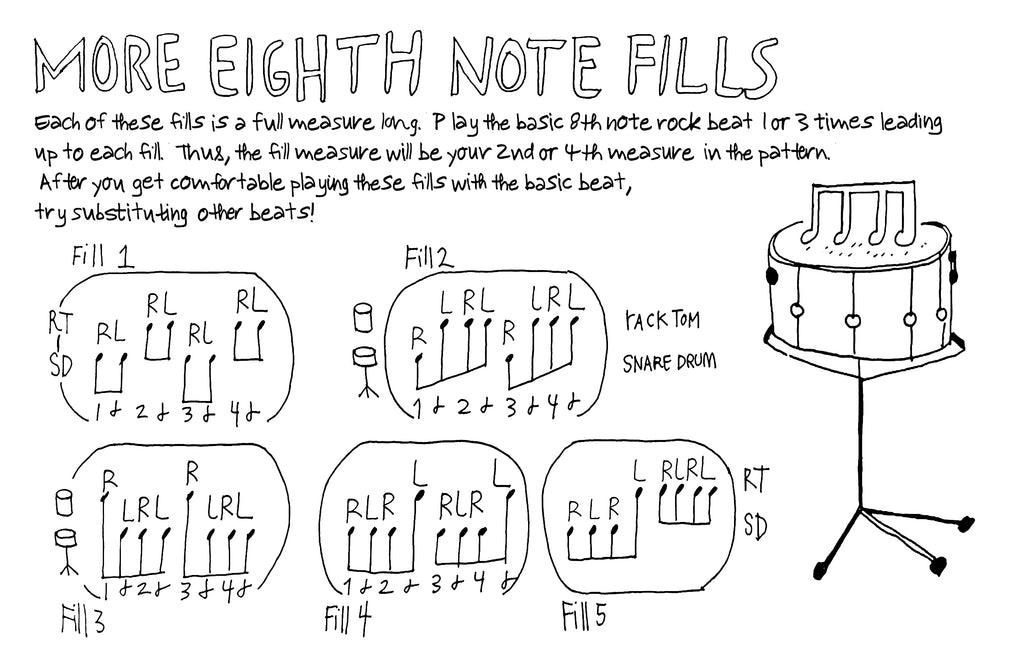 MORE EIGHTH NOTE FILLS
Each of these fills is a full measure long. Play the basic 8th note rock beat 1 or 3 times leading
up to each fill. Thus, the fill measure will be your 2nd or 4th measure in the pattern.
After you get comfortable playing these fills with the basic beat,
try substituting other beats!
Fill 1
RT
SD
RL RL RL RL
1 & 2 & 3 & 4 &
Fill 2
R L R L R L R L
1 & 2 & 3 & 4 &
RACK TOM
SNARE DRUM
R L R L R L R L
1 & 2 & 3 & 4 &
Fill 3
R L R L R L R L
1 & 2 & 3 & 4 &
Fill 4
R L R L R L R L
RT
SD
Fill 5